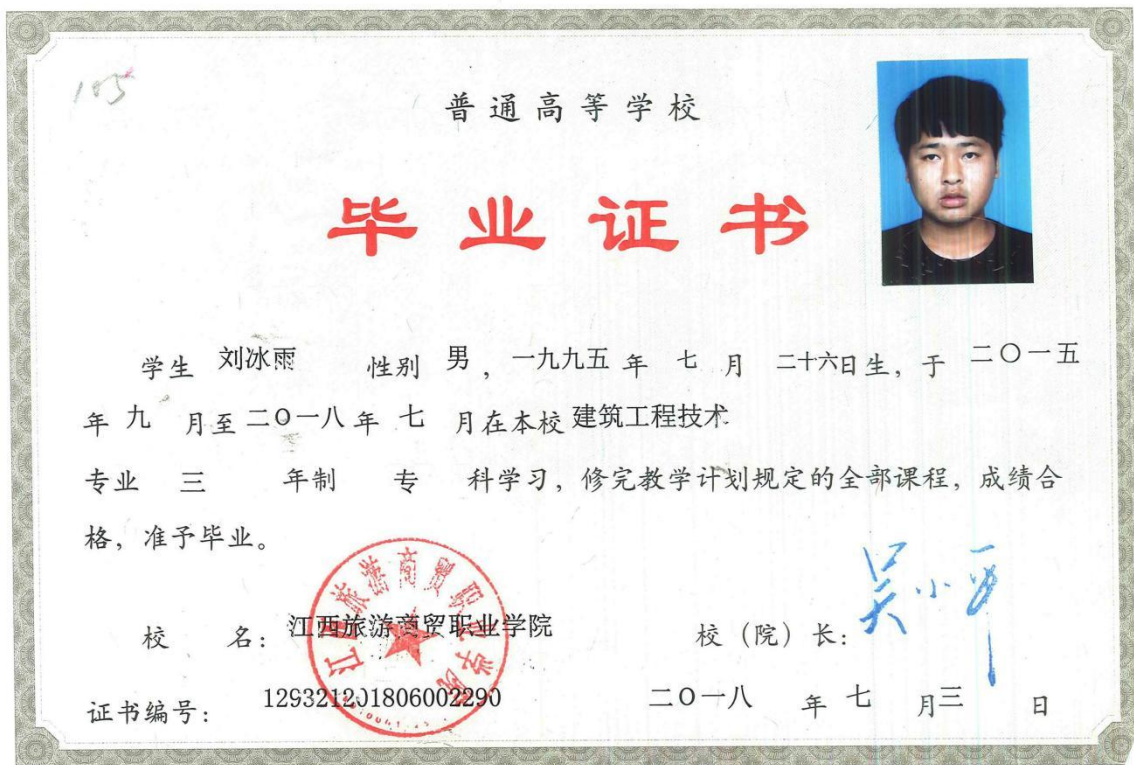 105
普通高等学校
毕业证书
学生 刘冰雨 性别 男，一九九五 年 七 月 二十六日生，于 二〇一五
年 九 月至 二〇一八 年 七 月在本校 建筑工程技术
专业 三 年制 专 科学习，修完教学计划规定的全部课程，成绩合
格，准予毕业。
江西旅游商贸职业学院
校 名：江西旅游商贸职业学院 校（院）长：吴小平
证书编号：129321201806002290 二〇一八 年 七 月 三 日